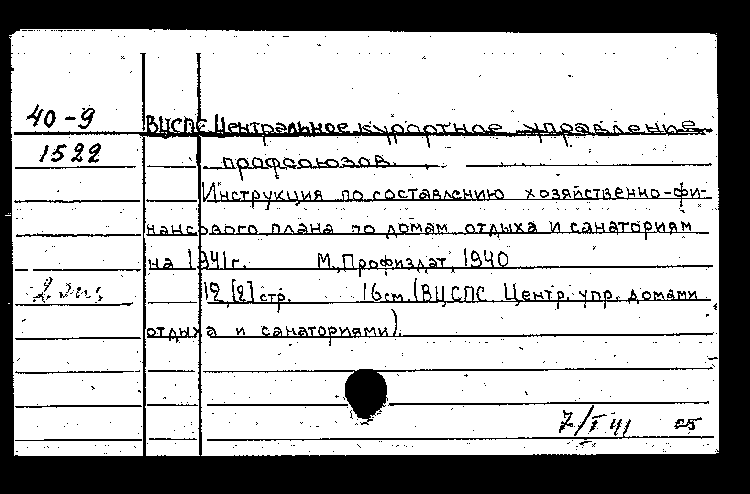 40-9
ВЦСПС Центральное курортное управление
1522
профсоюзов.
Инструкция по составлению хозяйственно-фи-
нансового плана по домам отдыха и санаториям
на 1941 г. М., Профиздат, 1940
2 экз
12, [2] стр. 16 см. (ВЦСПС Центр. упр. домами
отдыха и санаториями).
7/I 41